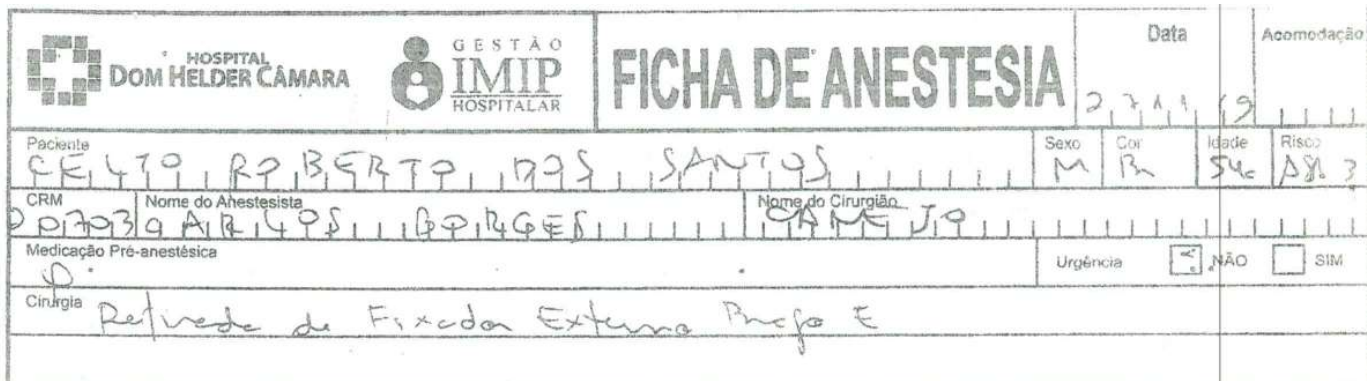 HOSPITAL
DOM HELDER CÂMARA
GESTÃO
IMIP
HOSPITALAR
FICHA DE ANESTESIA
Data
Acomodação
Paciente
CELIO ROBERTO DOS SANTOS
Sexo
M
Cor
Br
Idade
54a
Risco
ASA 3
CRM
Nome do Anestesista
CARLOS BORGES
Nome do Cirurgião
Medicação Pré-anestésica
Urgência
NÃO
SIM
Cirurgia
Retirada de Fixador Externo Braço E